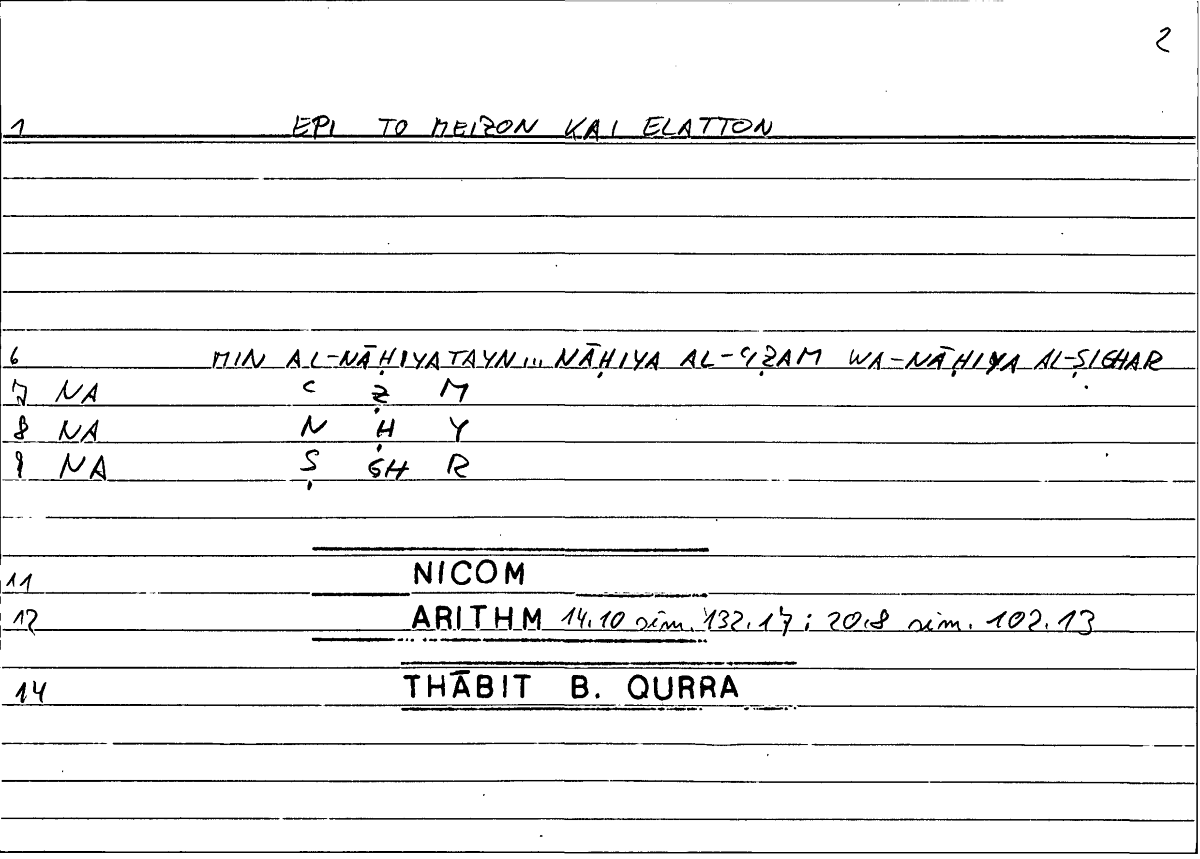 2
1 EPI TO MEIZON KAI ELATTON
6 MIN AL-NĀḤIYATAYN... NĀḤIYA AL-ʿIẒAM WA-NĀḤIYA AL-ṢIGHAR
7 NA ʿ Ẓ M
8 NA N Ḥ Y
9 NA Ṣ GH R
11 NICOM
12 ARITHM 14.10 sim. 132.17; 20.8 sim. 102.13
14 THĀBIT B. QURRA